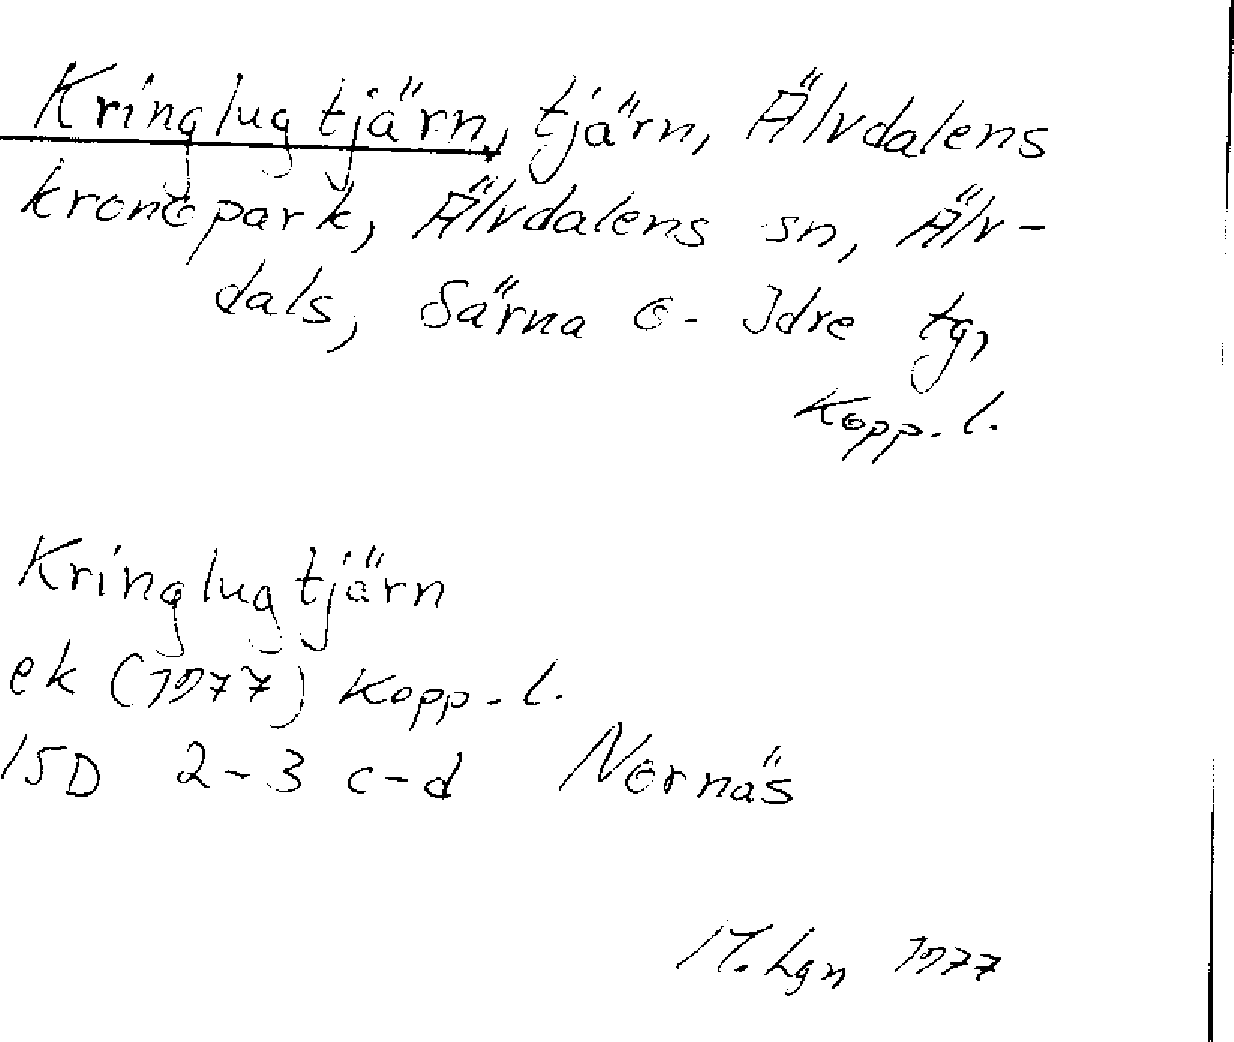 Kringlugtjärn, tjärn, Älvdalens
kronopark, Älvdalens sn, Älv-
dals, Särna o. Idre tg,
Kopp. l.
Kringlugtjärn
ek (1977) Kopp. l.
15D 2-3 c-d Nornäs
M. Lgn 1977